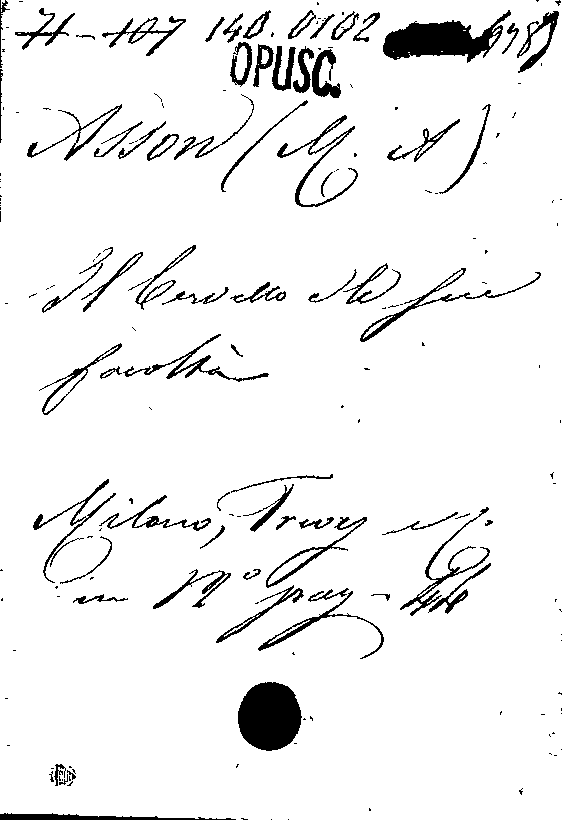 71-107 140.0102
OPUSC.
Asson (M. A)
Il Cervello e le sue
facoltà
Milano, Treves M.
in 12° pag - 46